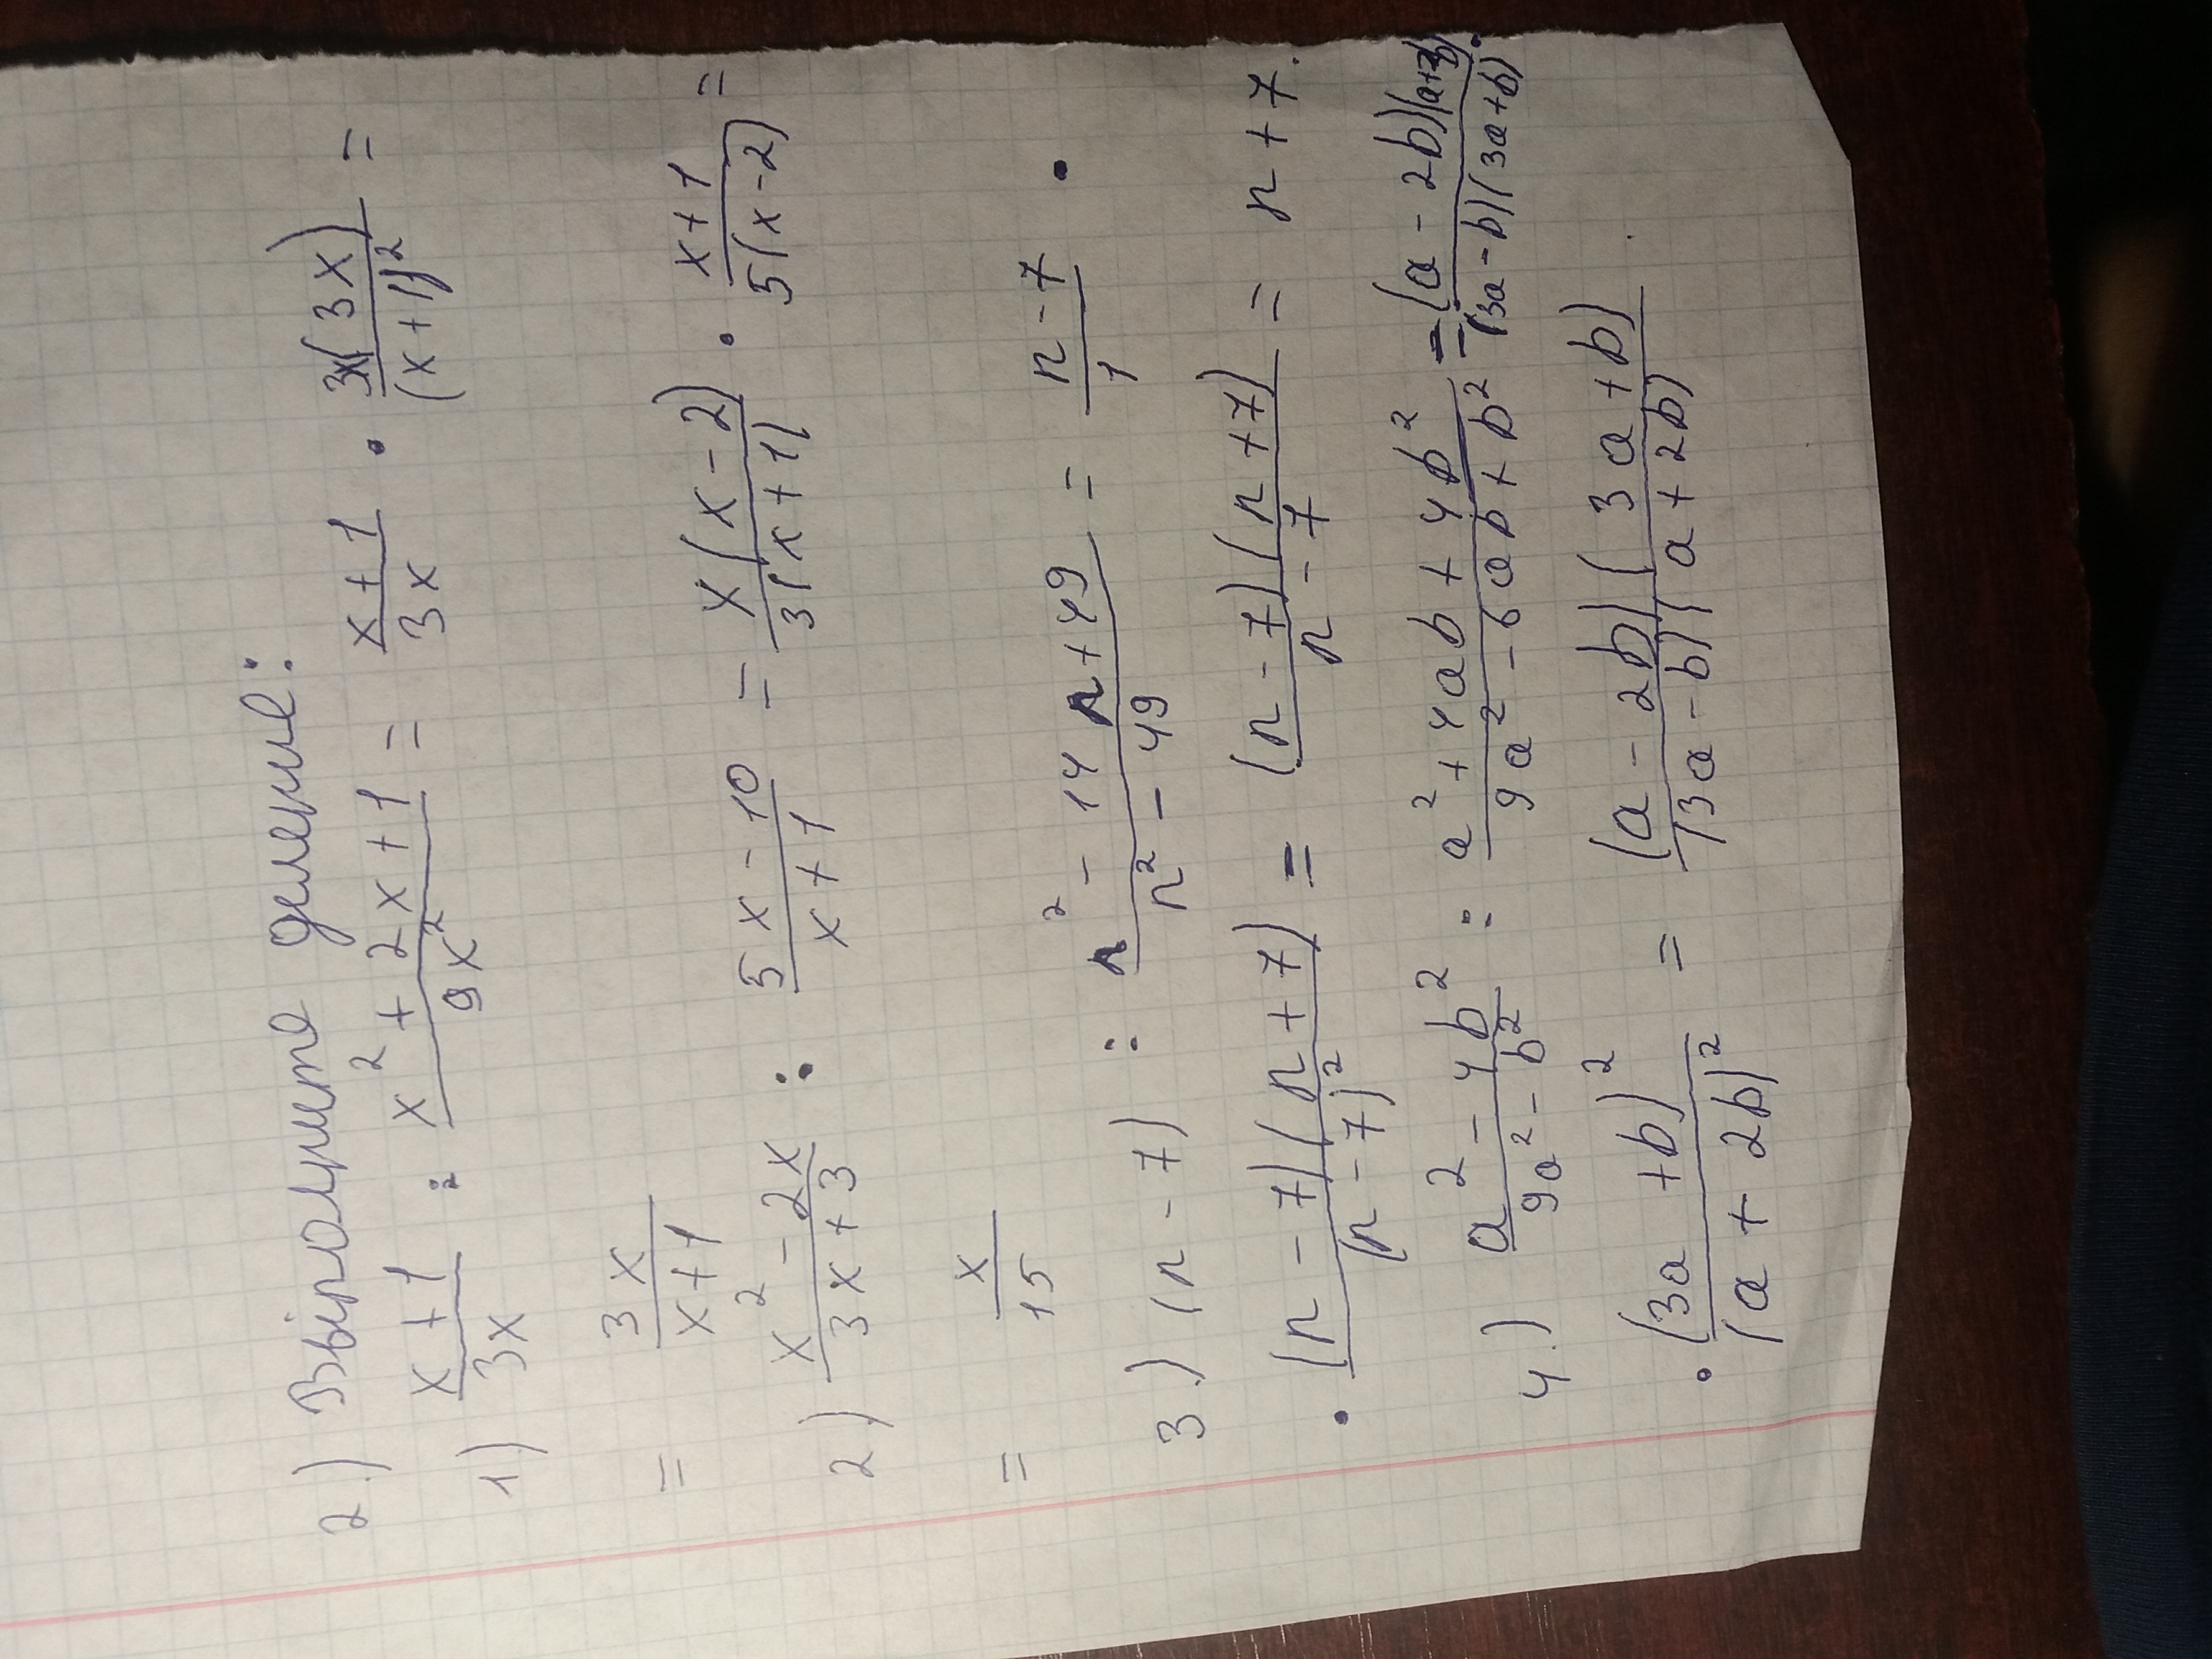 2.) Выполните деление:
1) (x+1)/(3x) : (x²+2x+1)/(9x²) = (x+1)/(3x) · (3x(3x))/((x+1)²) =
= 3x/(x+1)
2) (x²-2x)/(3x+3) : (5x-10)/(x+1) = (x(x-2))/(3(x+1)) · (x+1)/(5(x-2)) =
= x/15
3.) (n-7) : (n²-14n+49)/(n²-49) = (n-7)/1 ·
· ((n-7)(n+7))/((n-7)²) = ((n-7)(n+7))/(n-7) = n+7.
4.) (a²-4b²)/(9a²-b²) : (a²+4ab+4b²)/(9a²-6ab+b²) = ((a-2b)(a+2b))/((3a-b)(3a+b)) ·
· ((3a+b)²)/((a+2b)²) = ((a-2b)(3a+b))/((3a-b)(a+2b))